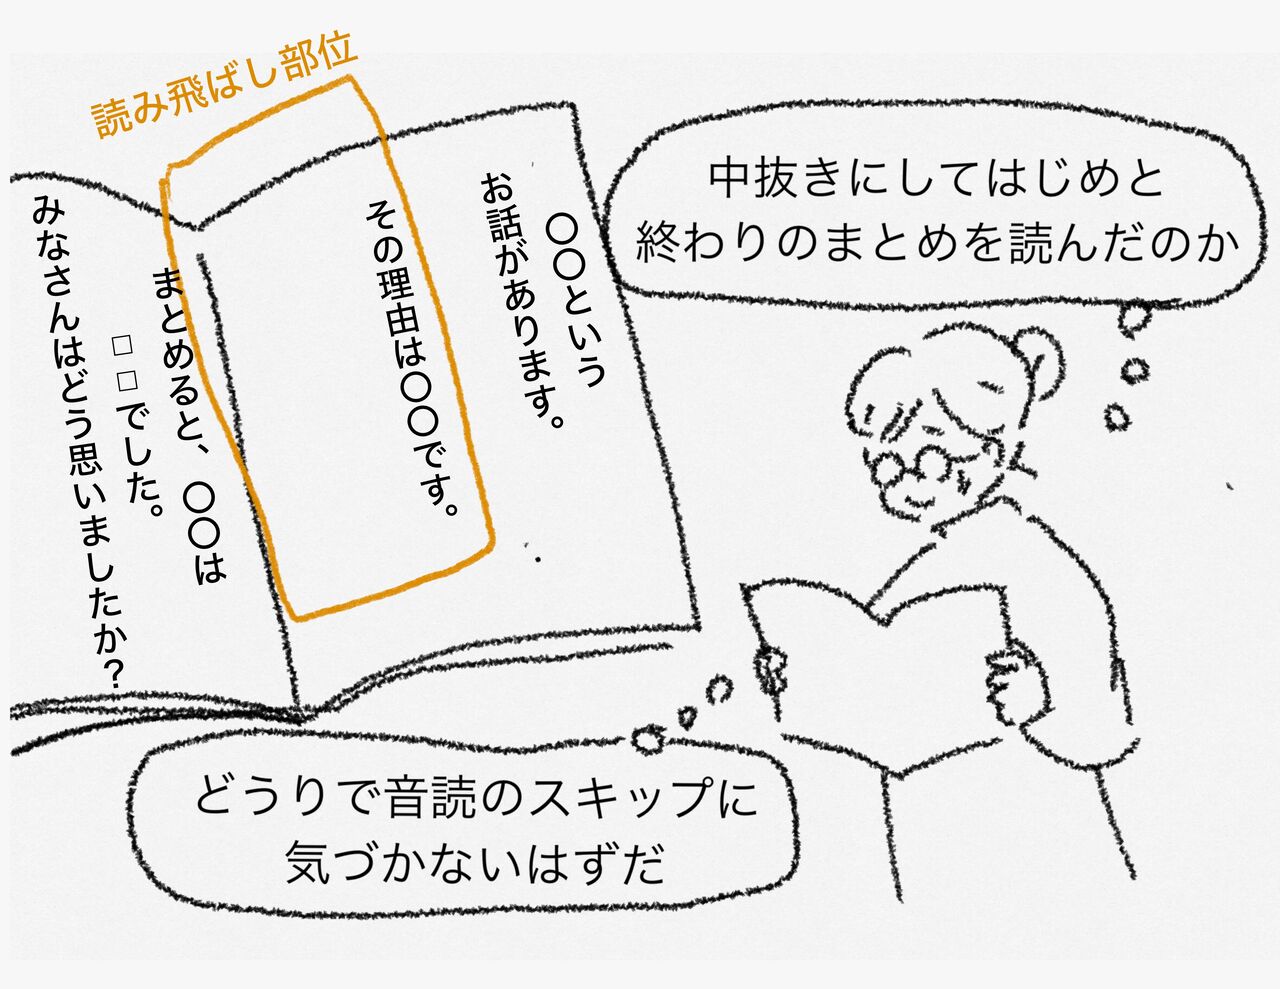 読み飛ばし部位
〇〇という
お話があります。
その理由は〇〇です。
まとめると、〇〇は
□□でした。
みなさんはどう思いましたか？
中抜きにしてはじめと
終わりのまとめを読んだのか
どうりで音読のスキップに
気づかないはずだ